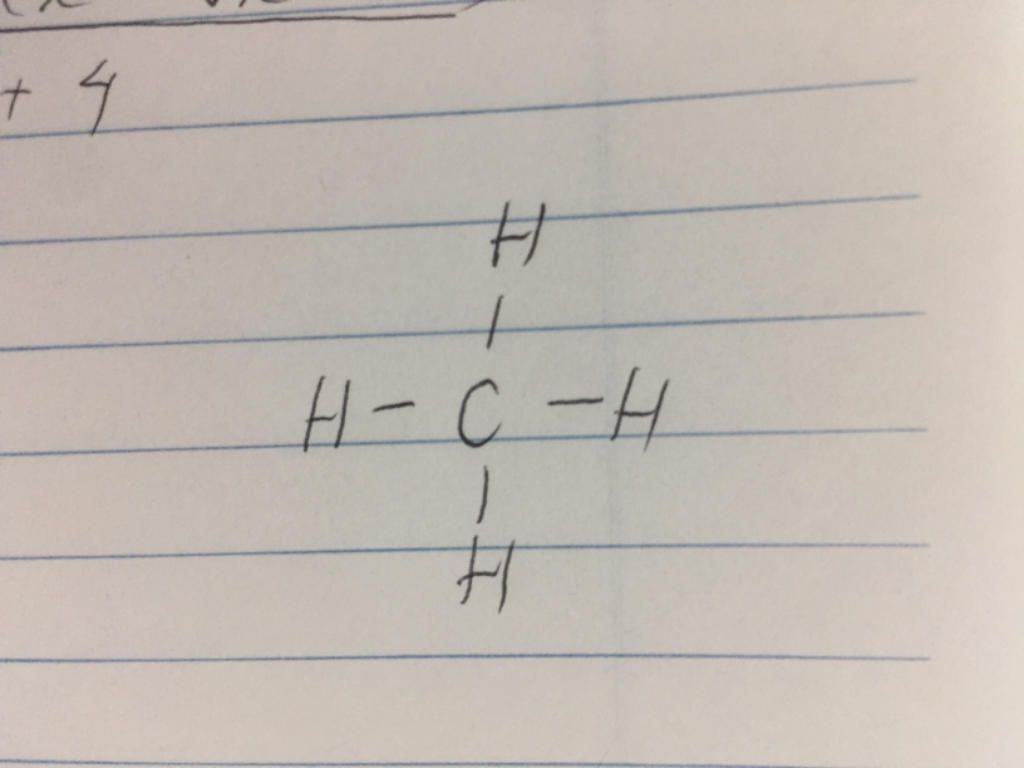 + 4
H
|
H - C - H
|
H